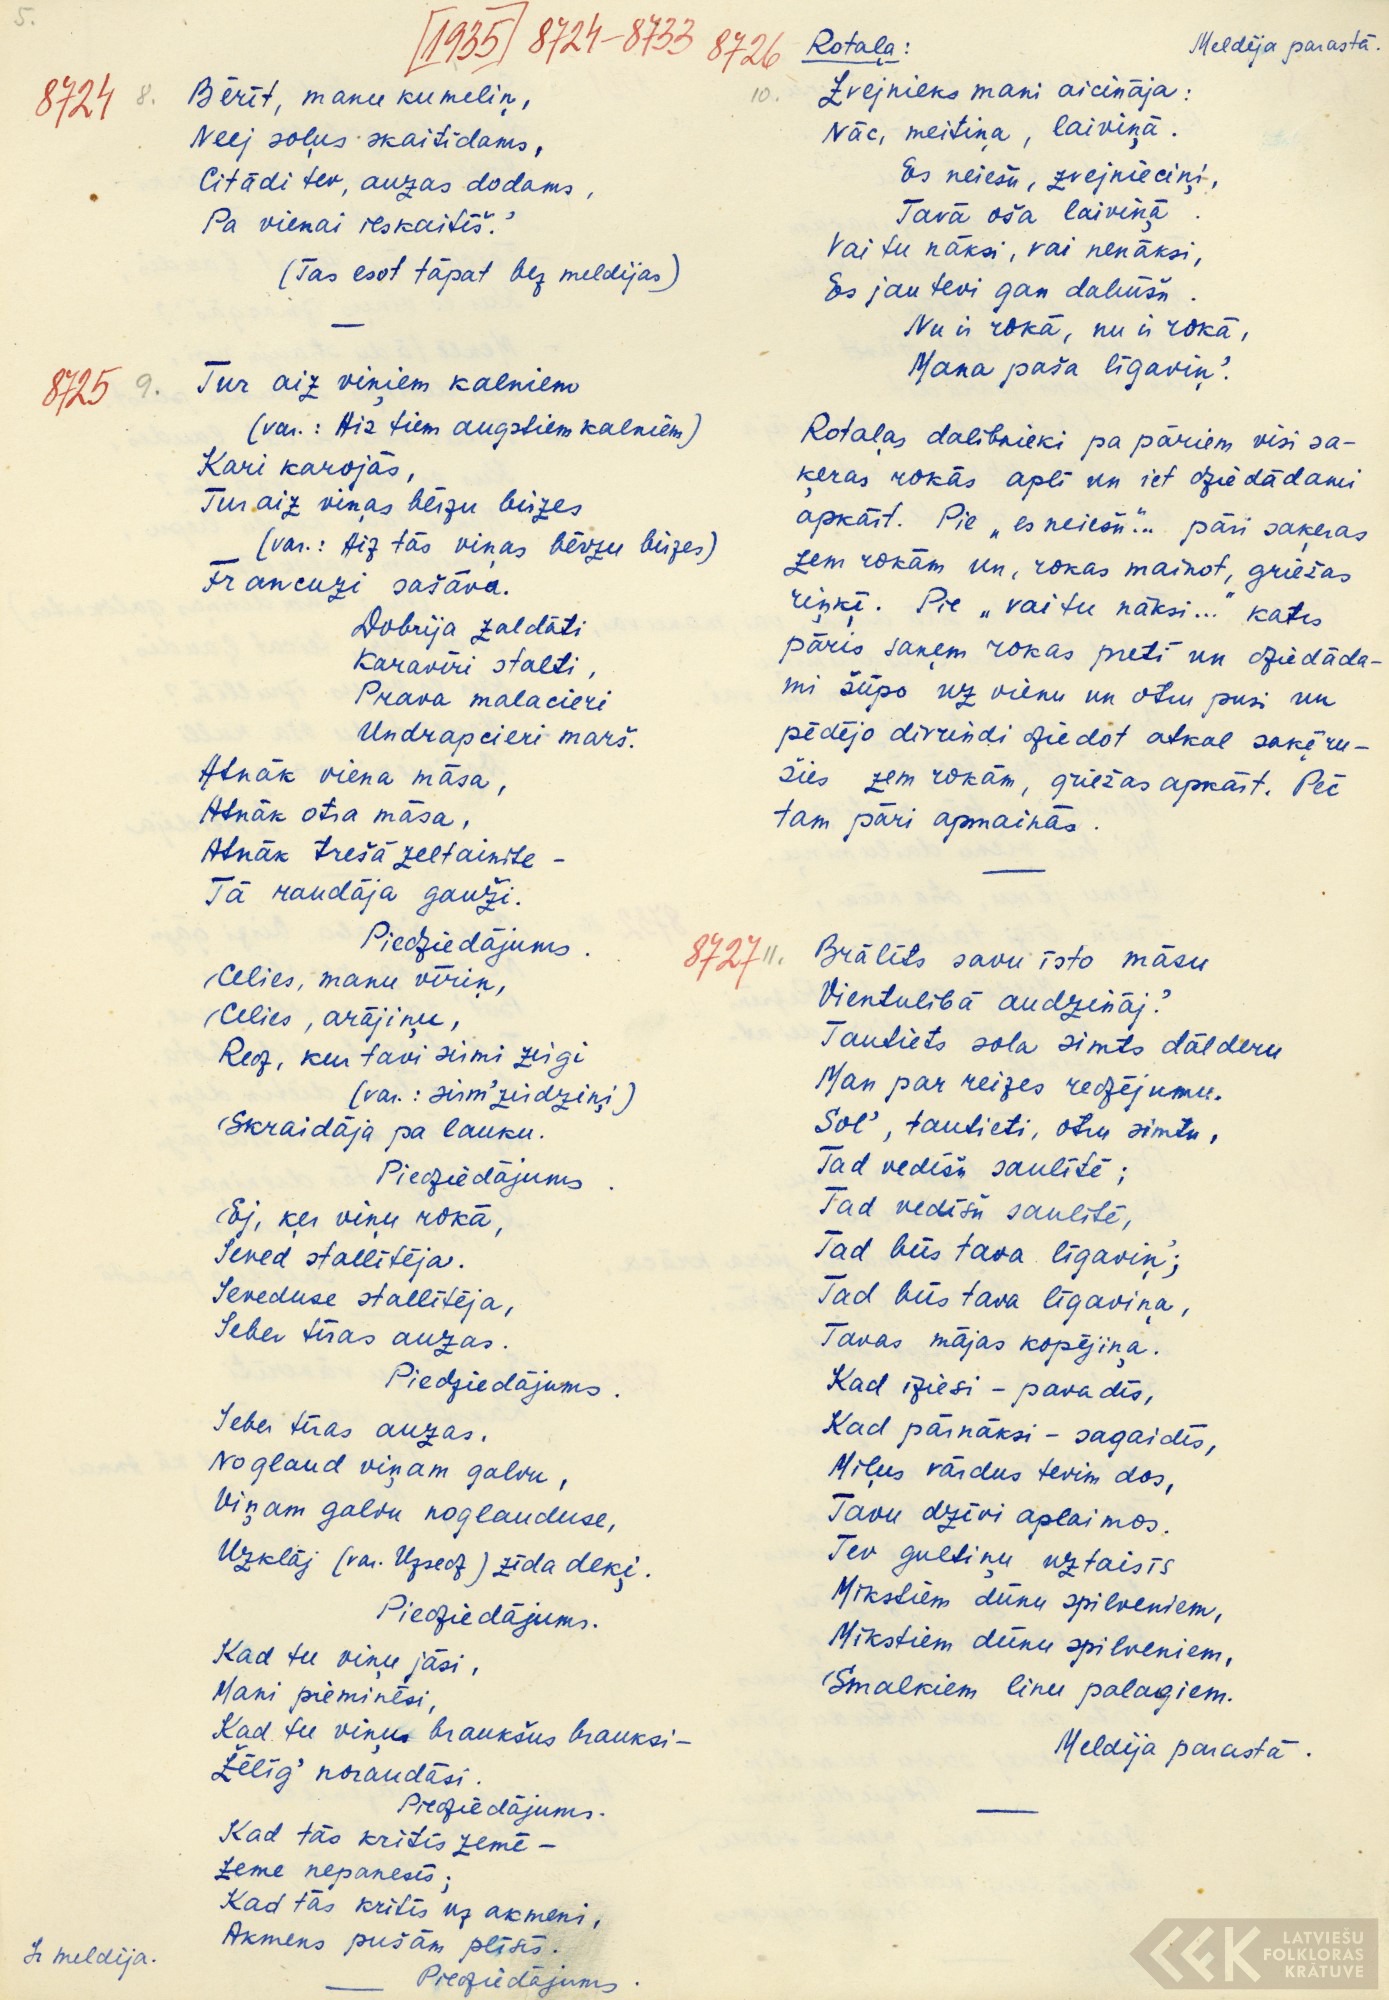 5.
[1935] 8724-8733
8724 8. Bērīt, manu kumeliņ,
Neej soļus skaitīdams,
Citādi tev, auzas dodams,
Pa vienai ieskaitīš.'
(Tas esot tāpat bez meldijas)
8725 9. Tur aiz viņiem kalniem
(var.: Aiz tiem augstiem kalniem)
Kari karojās,
Tur aiz viņas bērzu birzes
(var.: Aiz tās viņas bērzu birzes)
Francuzi sašāva.
Dobrija zaldāti
Karavīri stalti,
Prava malacieri
Undrapcieri marš.
Atnāk viena māsa,
Atnāk otra māsa,
Atnāk trešā zeltainīte -
Tā raudāja gauži.
Piedziedājums.
Celies, manu vīriņ,
Celies, arājiņu,
Redz, kur tavi sirmi zirgi
(var.: sirm' zirdziņi)
Skraidāja pa lauku.
Piedziedājums.
Ej, ķer viņu rokā,
Ieved stallītēja.
Ieveduse stallītēja,
Ieber tīras auzas.
Piedziedājums.
Ieber tīras auzas.
Noglaud viņam galvu,
Viņam galvu noglauduse,
Uzklāj (var. Uzsedz) zīda deķi.
Piedziedājums.
Kad tu viņu jāsi,
Mani pieminēsi,
Kad tu viņus braukšus brauksi-
Žēlīg' noraudāsi.
Piedziedājums.
Kad tās kritīs zemē -
Zeme nepanesīs;
Kad tās kritīs uz akmeni,
Akmens pušām plīsīs.
Ir meldija.
Piedziedājums.
8726 Rotaļa: Meldija parastā.
10. Zvejnieks mani aicināja:
Nāc, meitiņa, laiviņā.
Es neiešu, zvejnieciņi,
Tavā oša laiviņā.
Vai tu nāksi, vai nenāksi,
Es jau tevi gan dabūšu.
Nu ir rokā, nu ir rokā,
Mana paša līgaviņ'.
Rotaļas dalībnieki pa pāriem visi sa-
ķeras rokās aplī un iet dziedādami
apkārt. Pie „es neiešu"... pāri saķeras
zem rokām un, rokas mainot, griežas
riņķī. Pie „vai tu nāksi..." katrs
pāris saņem rokas pretī un dziedāda-
mi šūpo uz vienu un otru pusi un
pēdējo divrindi dziedot atkal saķēru-
šies zem rokām, griežas apkārt. Pēc
tam pāri apmainās.
8727 11. Brālīts savu īsto māsu
Vientulībā audzināj.'
Tautiets sola simts dālderu
Man par reizes redzējumu.
Sol', tautieti, otru simtu,
Tad vedīšu saulītē;
Tad vedīšu saulītē,
Tad būs tava līgaviņ';
Tad būs tava līgaviņa,
Tavas mājas kopējiņa.
Kad iziesi - pavadīs,
Kad pārnāksi - sagaidīs,
Miļus vārdus tevim dos,
Tavu dzīvi aplaimos.
Tev gultiņu uztaisīs
Mīkstiem dūnu spilveniem,
Mīkstiem dūnu spilveniem,
Smalkiem linu palagiem.
Meldija parastā.
LATVIEŠU
FOLKLORAS
KRĀTUVE